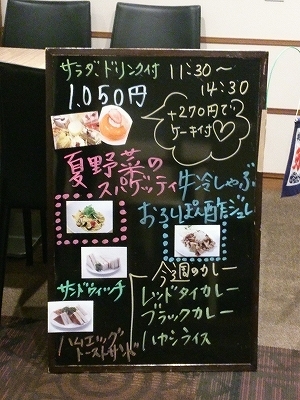 サラダ、ドリンク付 11:30～
14:30
1,050円
+270円で
ケーキ付♡
夏野菜の
スパゲッティ
牛冷しゃぶ
おろしぽん酢ジュレ
サンドウィッチ
ハムエッグ
トーストサンド
今週のカレー
レッドタイカレー
ブラックカレー
ハヤシライス